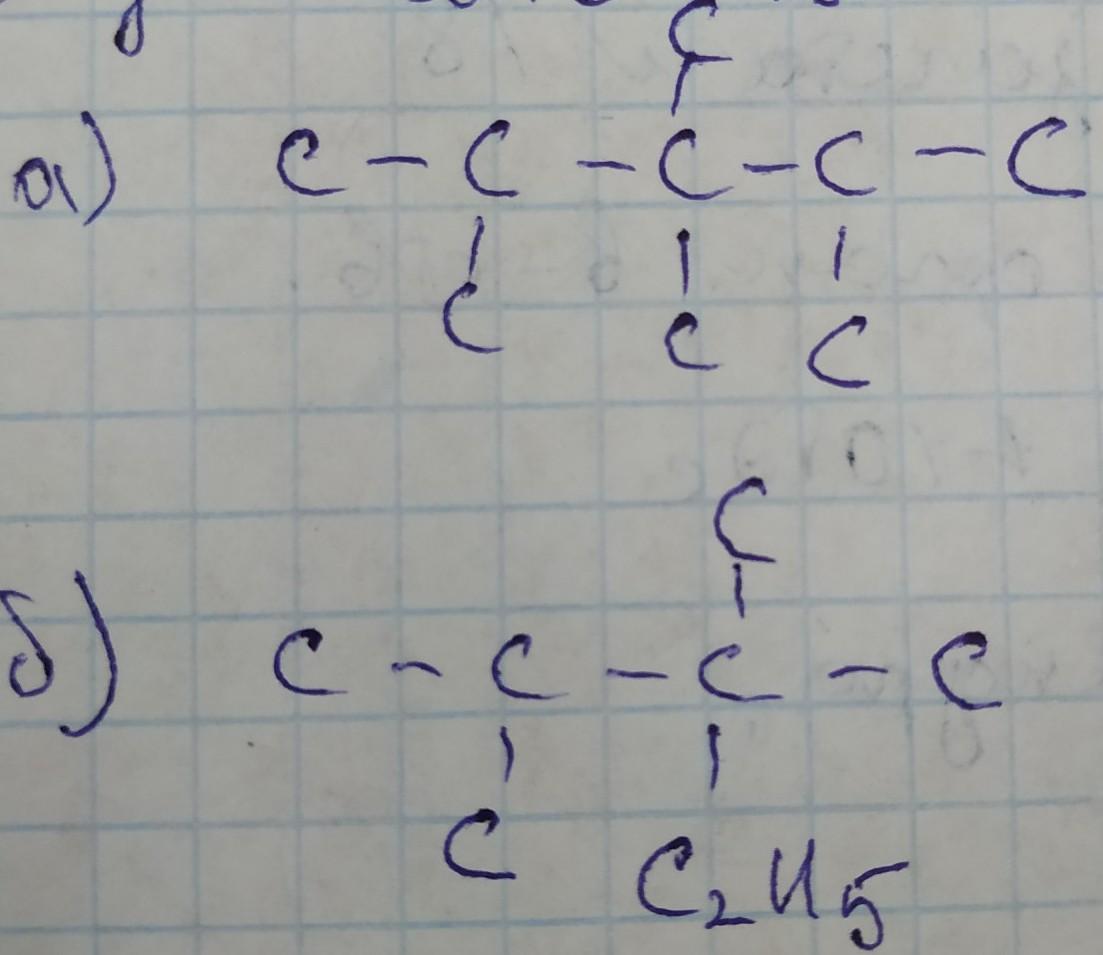 C
а) C - C - C - C - C
C C C
C
б) C - C - C - C
C C₂H₅